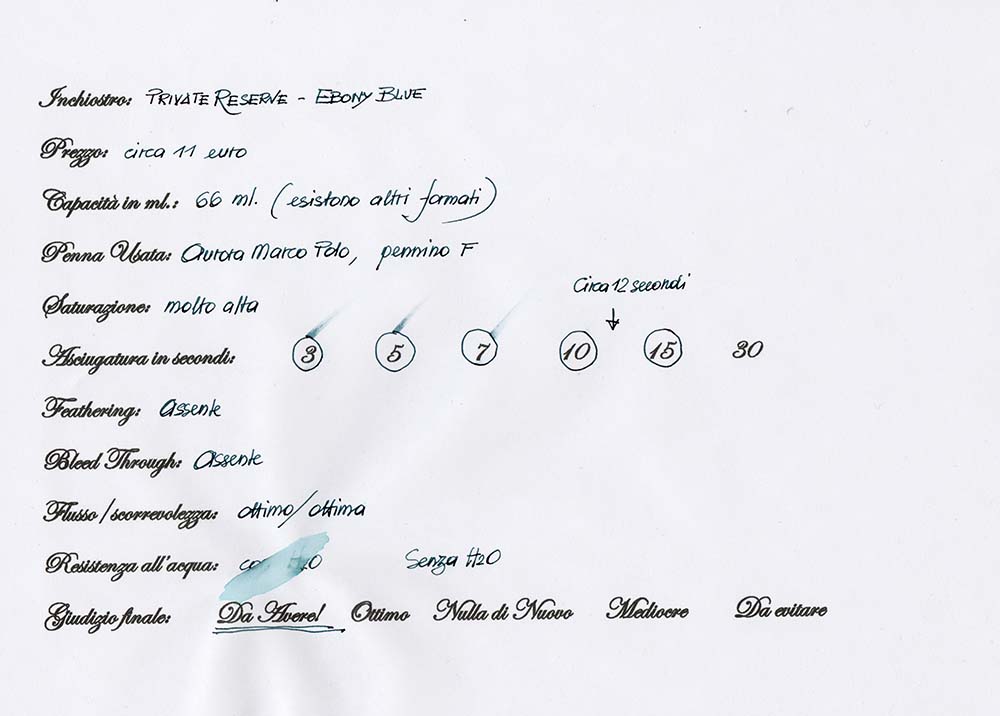 Inchiostro: PRIVATE RESERVE - EBONY BLUE
Prezzo: circa 11 euro
Capacità in ml.: 66 ml. (esistono altri formati)
Penna Usata: Aurora Marco Polo, pennino F
Circa 12 secondi
Saturazione: molto alta
Asciugatura in secondi: 3 5 7 10 15 30
Feathering: Assente
Bleed Through: Assente
Flusso/scorrevolezza: ottimo/ottima
Resistenza all'acqua: con H2O Senza H2O
Giudizio finale: Da Avere! Ottimo Nulla di Nuovo Mediocre Da evitare